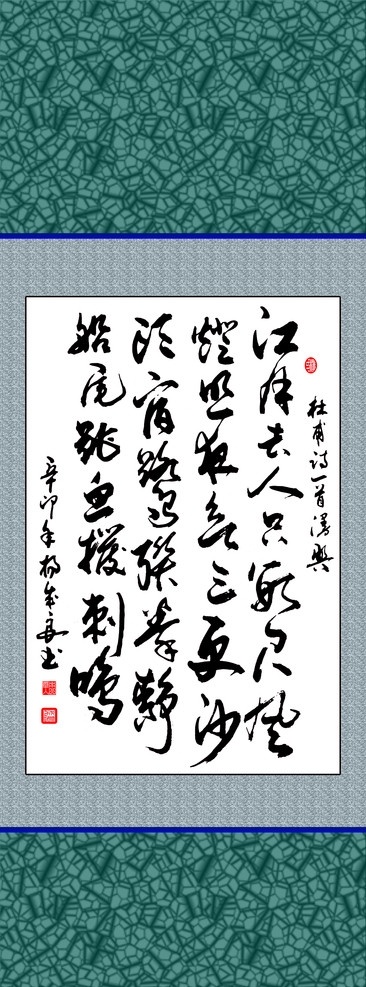 杜甫诗一首漫興
江月去人只數尺風
燈照夜欲三更沙
头宿鷺聯拳静
船尾跳魚撥刺鳴
辛卯年楊 書